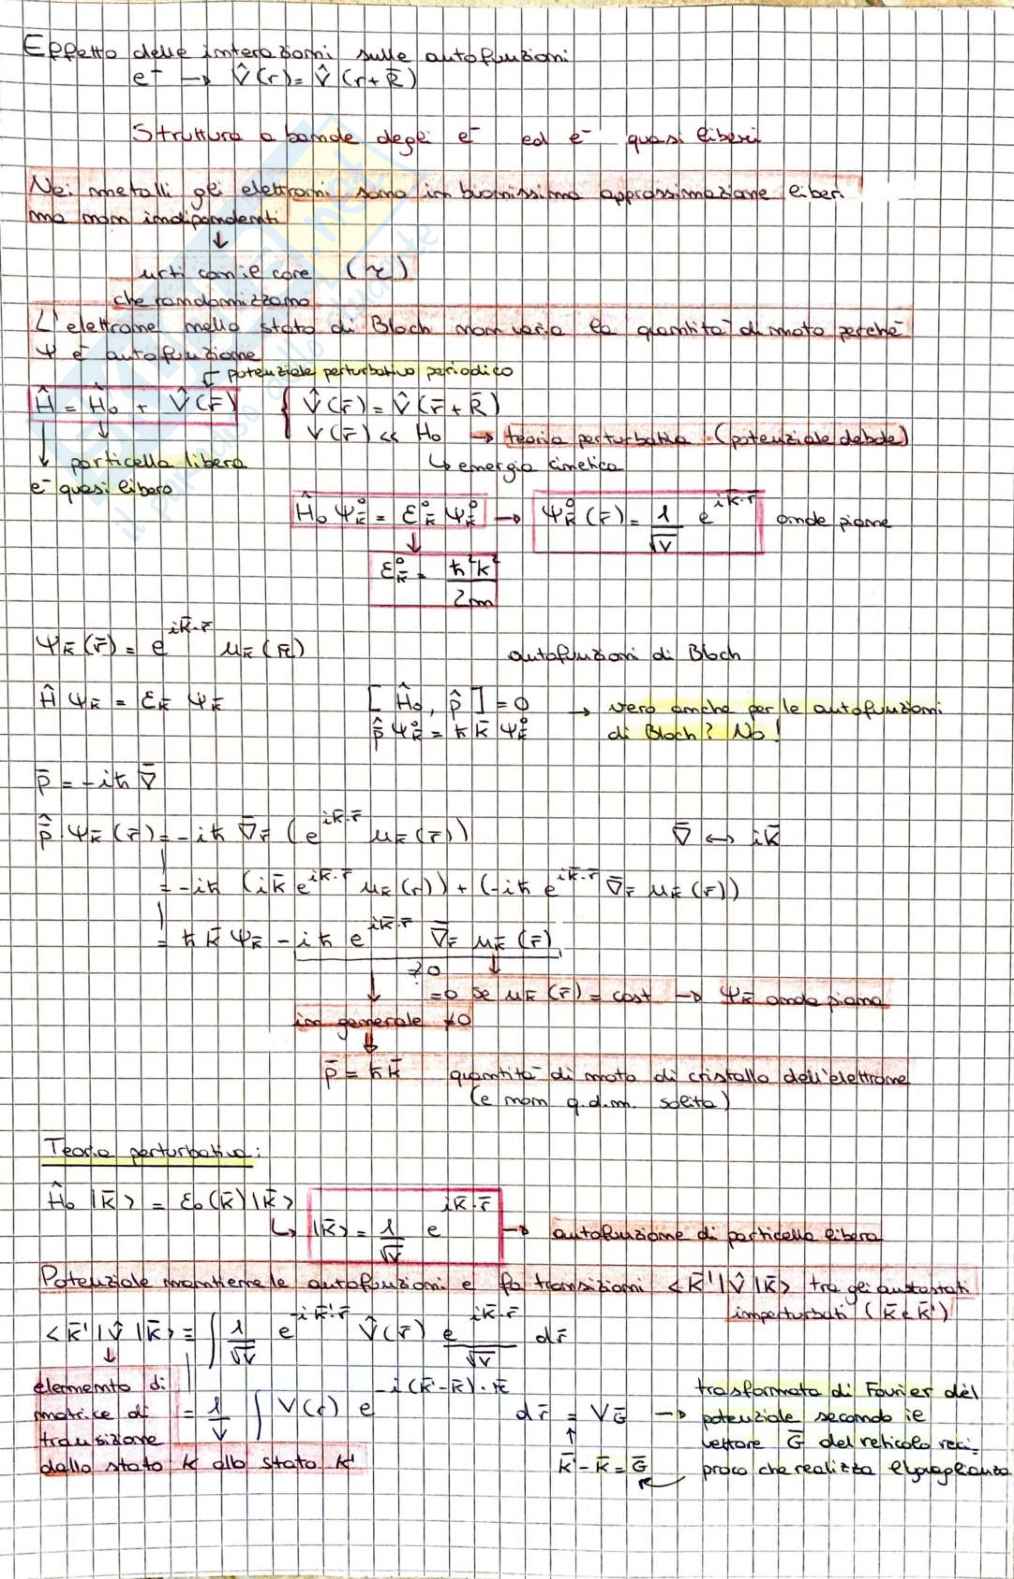 Effetto delle interazioni sulle autofunzioni
e⁻ → V̂(r) = V̂(r+R̄)
Struttura a bande degli e⁻ ed e⁻ quasi liberi
Nei metalli gli elettroni sono in buonissima approssimazione liberi
ma non indipendenti
↓
urti con ie core (τ)
che randomizzano
L'elettrone nello stato di Bloch non varia la quantità di moto perché
ψ è autofunzione
potenziale perturbativo periodico
Ĥ = Ĥ₀ + V̂(r̄) { V̂(r̄) = V̂(r̄+R̄)
V(r̄) << H₀ → teoria perturbativa (potenziale debole)
↓ particella libera ↳ energia cinetica
e⁻ quasi libero
Ĥ₀ ψ°k̄ = ε°k̄ ψ°k̄ → ψ°k̄(r̄) = 1/√V e^{ik̄·r̄} onde piane
↓
ε°k̄ = ħ²k²/2m
ψk̄(r̄) = e^{ik̄·r̄} μk̄(r̄) autofunzioni di Bloch
Ĥ ψk̄ = εk̄ ψk̄ [Ĥ₀, p̂] = 0 → vero anche per le autofunzioni
p̂ ψ°k̄ = ħk̄ ψ°k̄ di Bloch? No!
p̄ = -iħ ∇̄
p̂ ψk̄(r̄) = -iħ ∇̄r̄ (e^{ik̄·r̄} μk̄(r̄)) ∇̄ ↔ ik̄
= -iħ (ik̄ e^{ik̄·r̄} μk̄(r)) + (-iħ e^{ik̄·r̄} ∇̄r̄ μk̄(r̄))
= ħk̄ ψk̄ - iħ e^{ik̄·r̄} ∇̄r̄ μk̄(r̄)
≠0 ↓
↓ =0 se μk̄(r̄) = cost → ψk̄ onde piana
in generale ≠0
↓
p̄ = ħk̄ quantità di moto di cristallo dell'elettrone
(e non q.d.m. solita)
Teoria perturbativa:
Ĥ₀ |k̄> = ε₀(k̄)|k̄>
↳ |k̄> = 1/√V e^{ik̄·r̄} → autofunzione di particella libera
Potenziale mantiene le autofunzioni e fa transizioni <k̄'|V̂|k̄> tra gli
imperturbati (k̄ e k̄')
<k̄'|V̂|k̄> = ∫ 1/√V e^{-ik̄'·r̄} V̂(r̄) e^{ik̄·r̄}/√V dr̄
↓
elemento di
matrice di = 1/V ∫ V(r) e^{-i(k̄'-k̄)·r̄} dr̄ = VḠ → trasformata di Fourier del
transizione potenziale secondo ie
dallo stato k allo stato k' vettore Ḡ del reticolo reci-
k̄'-k̄=Ḡ proco che realizza l'uguaglianza